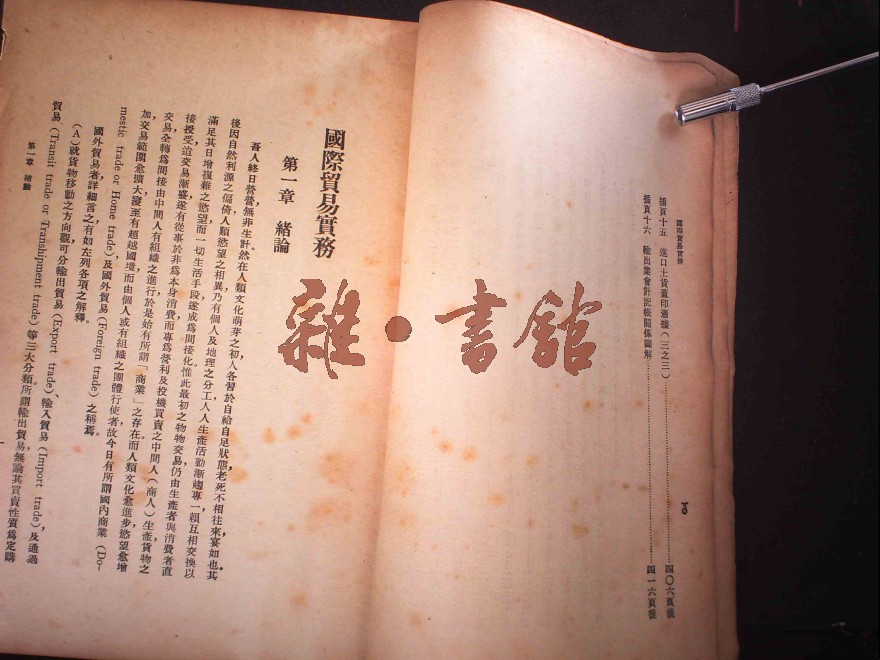 國際貿易實務
插頁十五 進口土貨蓋印憑據（三之三）……四〇六頁後
插頁十六 輸出業會計記帳關係圖解……四一六頁後
國際貿易實務
第一章 緒論
吾人終日營營無非生計然在人類文化萌芽之初人各習於自給自足狀態老死不相往來宴如也其
後因自然利源之偏倚人類慾望之相異乃有個人及地理之分工人人生產活動漸趨專一賴互相交換以
滿足其日增複雜之慾望而一切生活手段遂成爲間接化惟此最初之物物交易仍由生產者與消費者直
接授受迨交易漸盛遂有從事於非爲本身消費而專爲營利及投機買賣之中間人（商人）生產貨物之
交易全轉爲間接由中間人有組織之進行於是始有所謂「商業」之存在而人類文化愈進步慾望愈增
加交易範圍愈擴大寖至有超越國境而由個人或有組織之團體行使者故今日有所謂國內商業（Do-
mestic trade or Home trade）及國外貿易（Foreign trade）之稱焉。
國外貿易者詳細言之有如左列各項之解釋。
（A）就貨物移動之方向觀可分輸出貿易（Export trade）、輸入貿易（Import trade），及通過
貿易（Transit trade or Transhipment trade）等三大分類所謂輸出貿易，無論其買賣性質爲定購
第一章 緒論
雜·書館